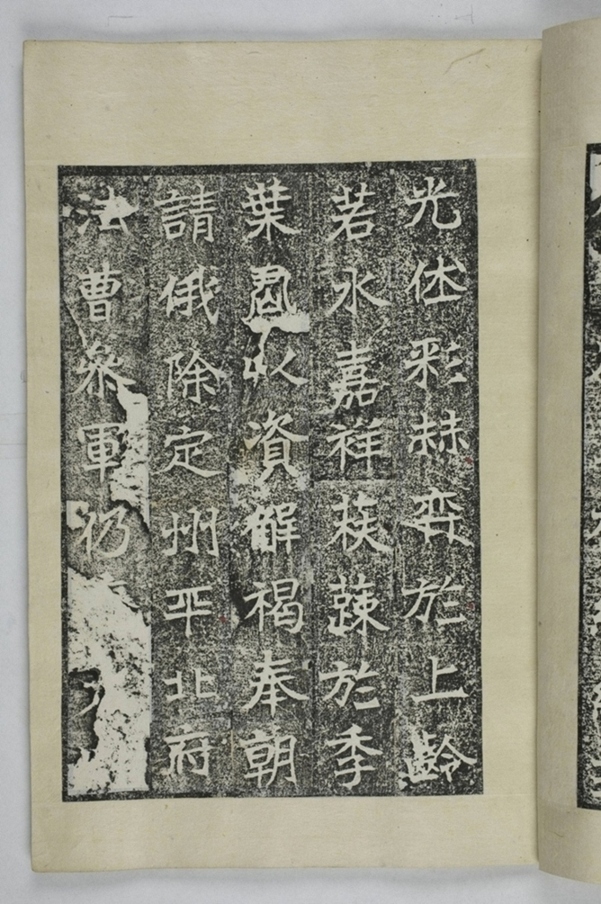 光休彩赫弈於上齡
若水嘉祥荴蔬於季
葉君以資解褐奉朝
請俄除定州平北府
法曹叅軍仍